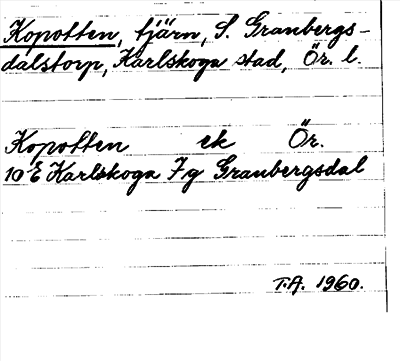 Kopotten, tjärn, S. Granbergs-
dalstorp, Karlskoga stad, Ör. l.
Kopotten ek Ör.
10 E Karlskoga 7g Granbergsdal
T.A. 1960.